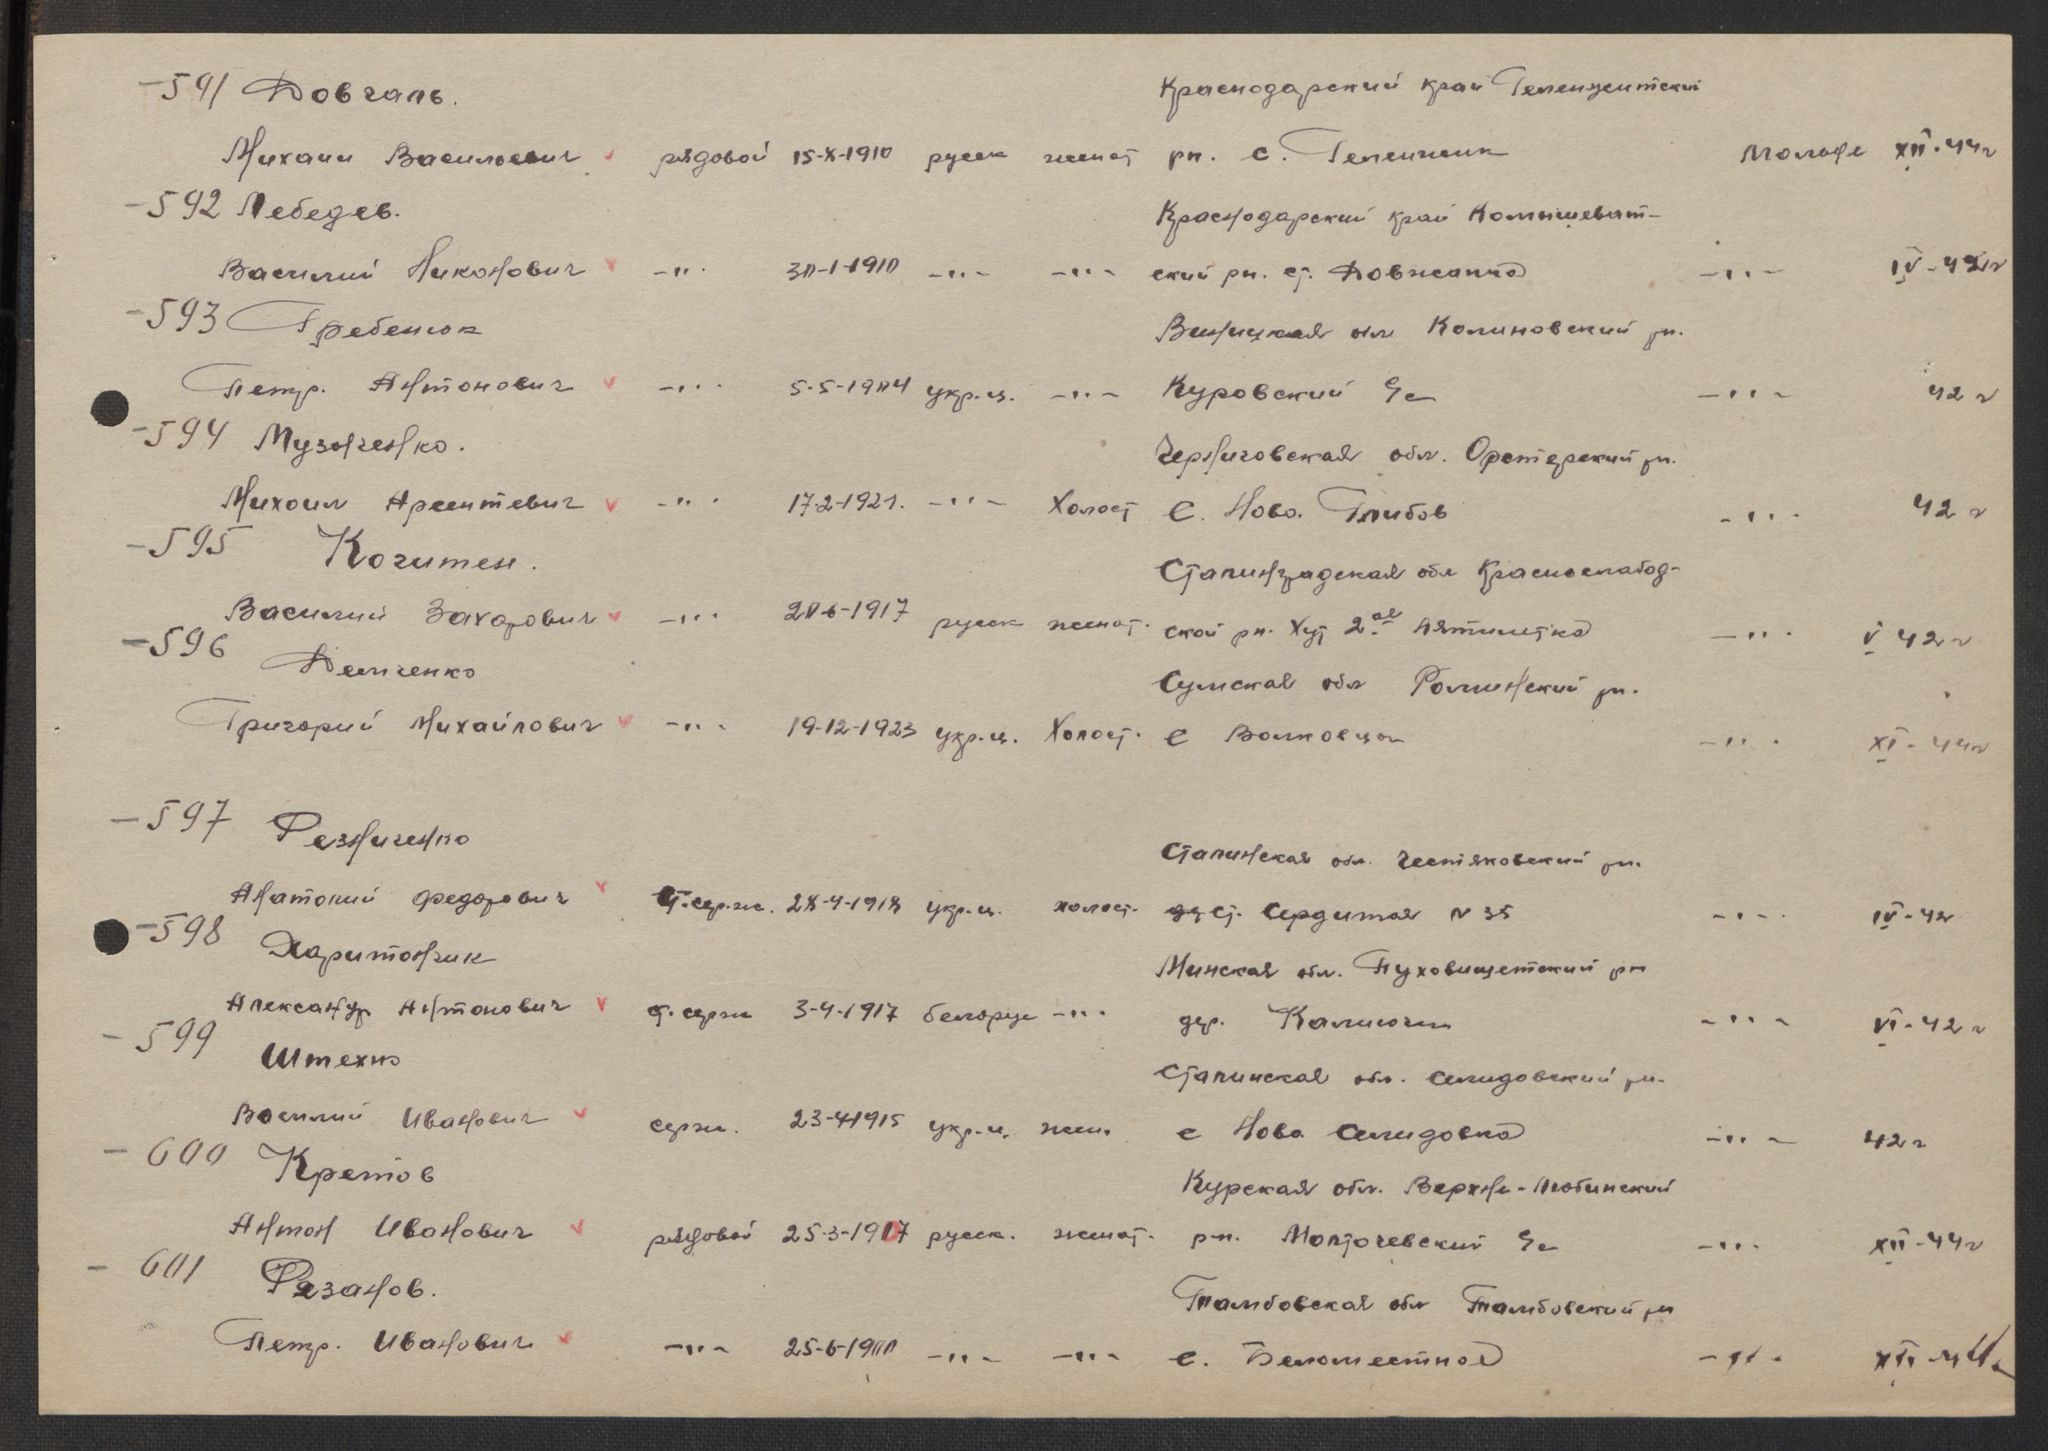 -591 Довгаль. Краснодарский край Геленджитский
Михаил Васильевич рядовой 15-X-1910 русск женат рн. с. Геленжик Мольде XII-44г
-592 Лебедев. Краснодарский край Комышеват-
Василий Никонович -"- 30-1-1910 -"- -"- ский рн. ст. Довжанка -"- IV-42г
-593 Гребенюк Виницкая обл Калиновский рн.
Петр. Антонович -"- 5-5-1904 укр.ц. -"- Куровский с -"- 42 г
-594 Музыченко. Черниговская обл. Остерский рн.
Михаил Арсентевич -"- 17-2-1921. -"- Холост с. Ново. Глибов -"- 42 г
-595 Кочитен. Сталинградская обл Краснослабод-
Василий Захарович -"- 20-6-1917 русск женат. ской рн. Хут 2ая пятилетка -"- V 42 г
-596 Демченко Сумская обл Роминский рн.
Григорий Михайлович -"- 19-12-1923 укр.ц. Холост. с Волковцы -"- XI-44г
-597 Резниченко Сталинская обл. Чистяковский рн.
Анатолий Федорович ст.серж. 28-4-1918 укр.ц. холост. ст. Сердитая N 35 -"- IV-42
-598 Харитончик Минская обл. Пуховищетский рн
Александр Антонович ст. серж 3-4-1917 белорус -"- дер. -"- VI-42 г
- 599 Штехно Сталинская обл. Селидовский рн.
Василий Иванович серж. 23-4-1915 укр.ц. жен. с Ново Селидовка -"- 42г
- 600 Кретов Курская обл. Верхне-Любинский
Антон Иванович рядовой 25-3-1907 русск. женат. р-н. Молточевский с -"- XII-44г
- 601 Рязанов. Тамбовская обл Тамбовский рн
Петр. Иванович -"- 25-6-1900 -"- -"- с. Беломестноя -"- XII-44